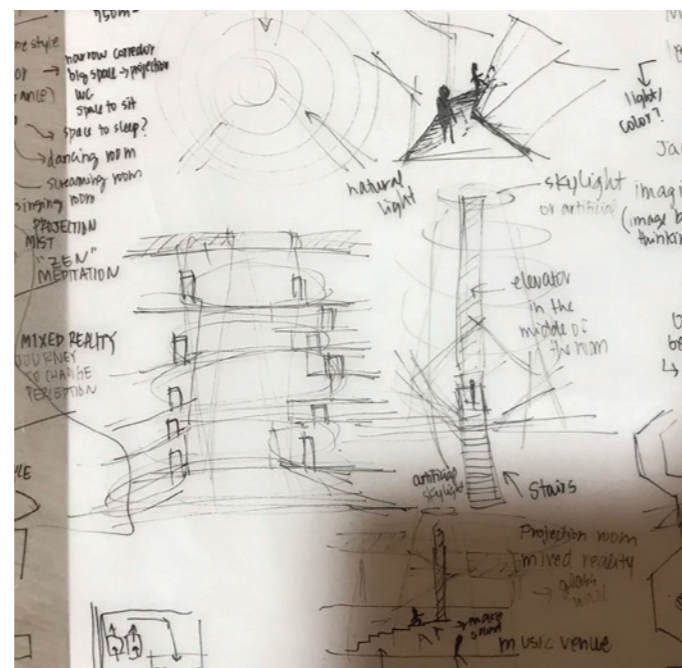 750m²
me style
narrow corredor
big space → projection
WC
space to sit
space to sleep?
dancing room
screaming room
singing room
PROJECTION
MIST
"ZEN"
MEDITATION
MIXED REALITY
JOURNEY
TO CHANGE
PERCEPTION
natural
light
light/
color?
skylight
or artificial
(image b
thinkin
elevator
in the
middle of
the room
artificial
skylight
Stairs
Projection room
mixed reality
→ glass
wall
make
sound
music venue